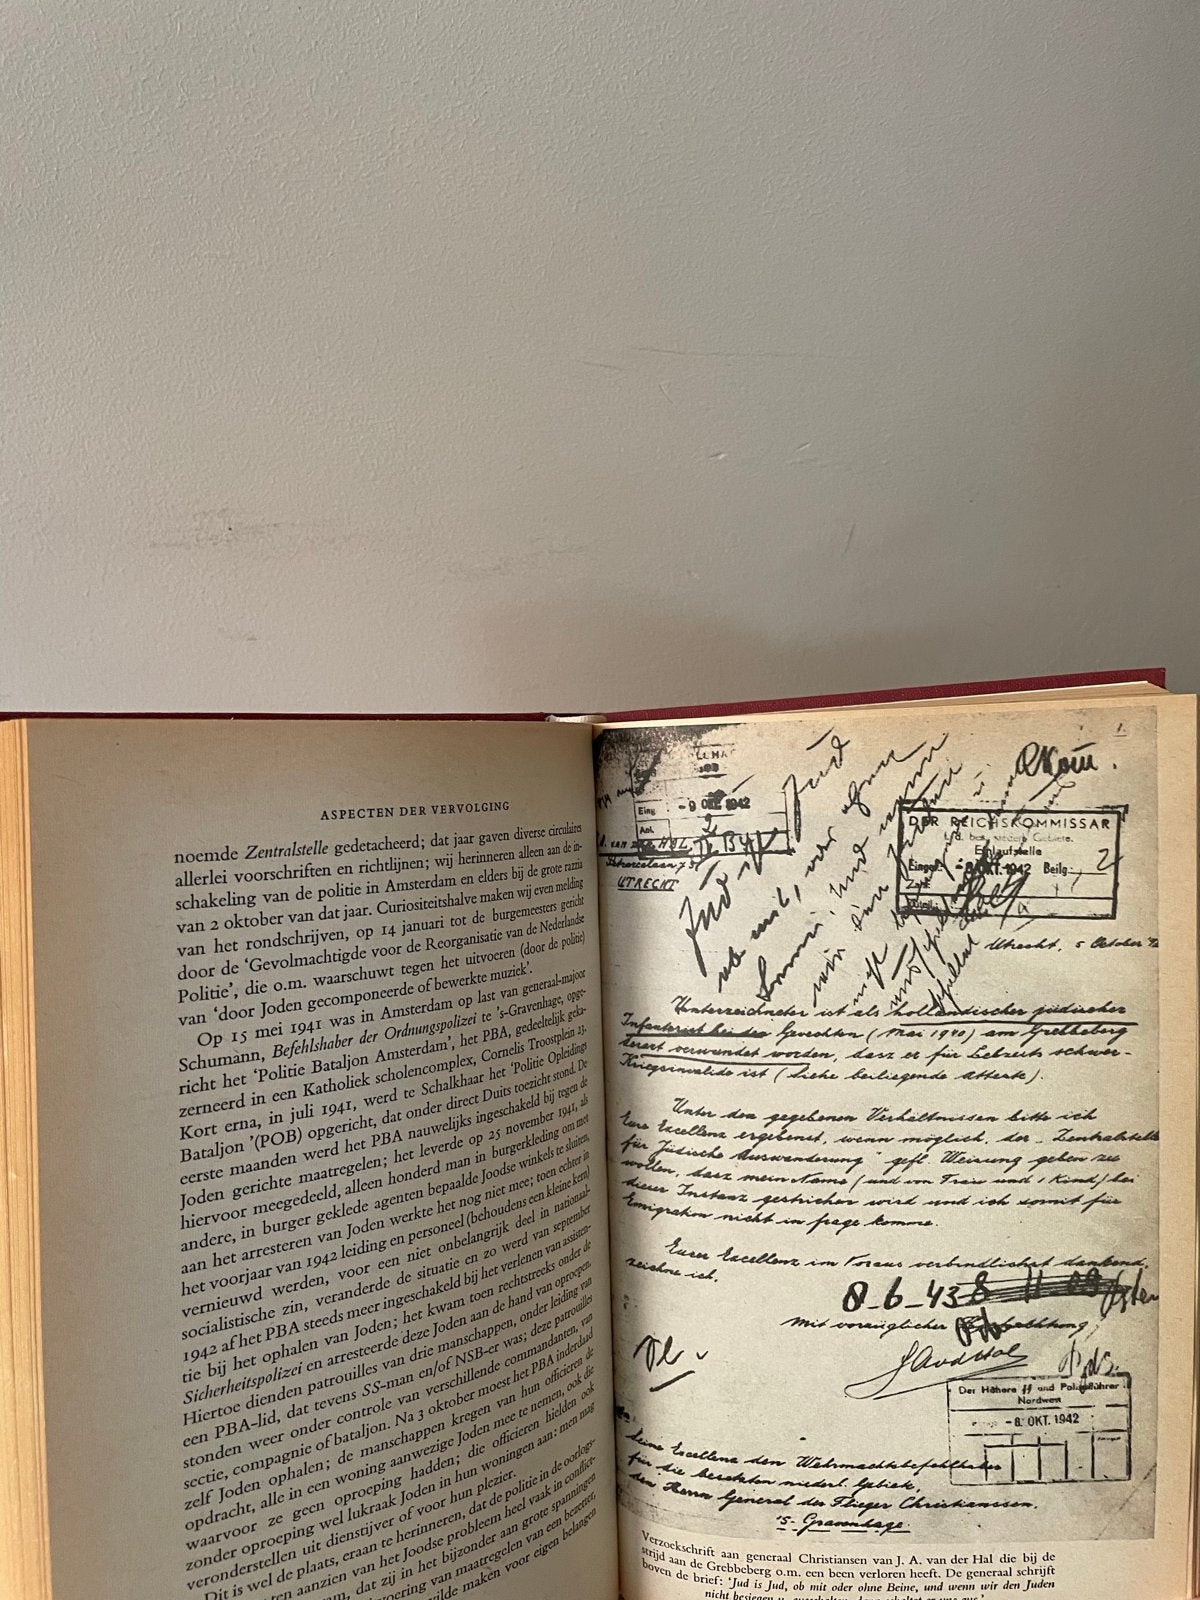 ASPECTEN DER VERVOLGING
noemde Zentralstelle gedetacheerd; dat jaar gaven diverse circulaires
allerlei voorschriften en richtlijnen; wij herinneren alleen aan de in-
schakeling van de politie in Amsterdam en elders bij de grote razzia
van 2 oktober van dat jaar. Curiositeitshalve maken wij even melding
van het rondschrijven, op 14 januari tot de burgemeesters gericht
door de ‘Gevolmachtigde voor de Reorganisatie van de Nederlandse
Politie’, die o.m. waarschuwt tegen het uitvoeren (door de politie)
van ‘door Joden gecomponeerde of bewerkte muziek’.
Op 15 mei 1941 was in Amsterdam op last van generaal-majoor
Schumann, Befehlshaber der Ordnungspolizei te ’s-Gravenhage, opge-
richt het ‘Politie Bataljon Amsterdam’, het PBA, gedeeltelijk geka-
zerneerd in een Katholiek scholencomplex, Cornelis Troostplein 23.
Kort erna, in juli 1941, werd te Schalkhaar het ‘Politie Opleidings
Bataljon ’(POB) opgericht, dat onder direct Duits toezicht stond. De
eerste maanden werd het PBA nauwelijks ingeschakeld bij tegen de
Joden gerichte maatregelen; het leverde op 25 november 1941, als
hiervoor meegedeeld, alleen honderd man in burgerkleding om met
andere, in burger geklede agenten bepaalde Joodse winkels te sluiten,
aan het arresteren van Joden werkte het nog niet mee; toen echter in
het voorjaar van 1942 leiding en personeel (behoudens een kleine kern)
vernieuwd werden, voor een niet onbelangrijk deel in nationaal-
socialistische zin, veranderde de situatie en zo werd van september
1942 af het PBA steeds meer ingeschakeld bij het verlenen van assisten-
tie bij het ophalen van Joden; het kwam toen rechtstreeks onder de
Sicherheitspolizei en arresteerde deze Joden aan de hand van oproepen.
Hiertoe dienden patrouilles van drie manschappen, onder leiding van
een PBA-lid, dat tevens SS-man en/of NSB-er was; deze patrouilles
stonden weer onder controle van verschillende commandanten, van
sectie, compagnie of bataljon. Na 3 oktober moest het PBA inderdaad
zelf Joden ophalen; de manschappen kregen van hun officieren de
opdracht, alle in een woning aanwezige Joden mee te nemen, ook die
waarvoor ze geen oproeping hadden; die officieren hielden ook
zonder oproeping wel lukraak Joden in hun woningen aan: men mag
veronderstellen uit dienstijver of voor hun plezier.
Dit is wel de plaats, eraan te herinneren, dat de politie in de oorlogs-
aanzien van het Joodse probleem heel vaak in conflict-
dat zij in het bijzonder aan grote spanningen
van maatregelen van een bezetter,
wilde maken voor eigen belangen
Eing. - 9 OKT. 1942
Anl.
UTRECHT
DER REICHSKOMMISSAR
f.d. bes. niederl. Gebiete.
Einlaufstelle
Eingel. - 8. OKT. 1942 Beilg. 2
Utrecht, 5 October
Unterzeichneter ist als holländischer jüdischer
Infanterist bei den Gefechten (Mai 1940) am Grebbeberg
derart verwundet worden, dasz er für Lebzeits schwer-
Kriegsinvalide ist (siehe beiliegende Atteste).
Unter den gegebenen Verhältnissen bitte ich
Eure Excellenz ergebenst, wenn möglich, der „Zentralstelle
für Jüdische Auswanderung” gefl. Weisung geben zu
wollen, dasz mein Name (und von Frau und 1 Kind) bei
dieser Instanz gestrichen wird und ich somit für
Emigration nicht in frage komme.
Eurer Excellenz im Voraus verbindlichst dankend,
zeichne ich,
8-6-43
Mit vorzüglicher
Der Höhere SS und Polizeiführer
Nordwest
- 8. OKT. 1942
Seine Excellenz den Wehrmachtbefehlhaber
für die besetzten niederl. Gebiete,
den Herrn General der Flieger Christianssen.
's-Gravenhage.
Verzoekschrift aan generaal Christiansen van J. A. van der Hal die bij de
strijd aan de Grebbeberg o.m. een been verloren heeft. De generaal schrijft
boven de brief: ‘Jud is Jud, ob mit oder ohne Beine, und wenn wir den Juden
nicht besiegen u. ausschalten, dann schaltet er uns aus.’